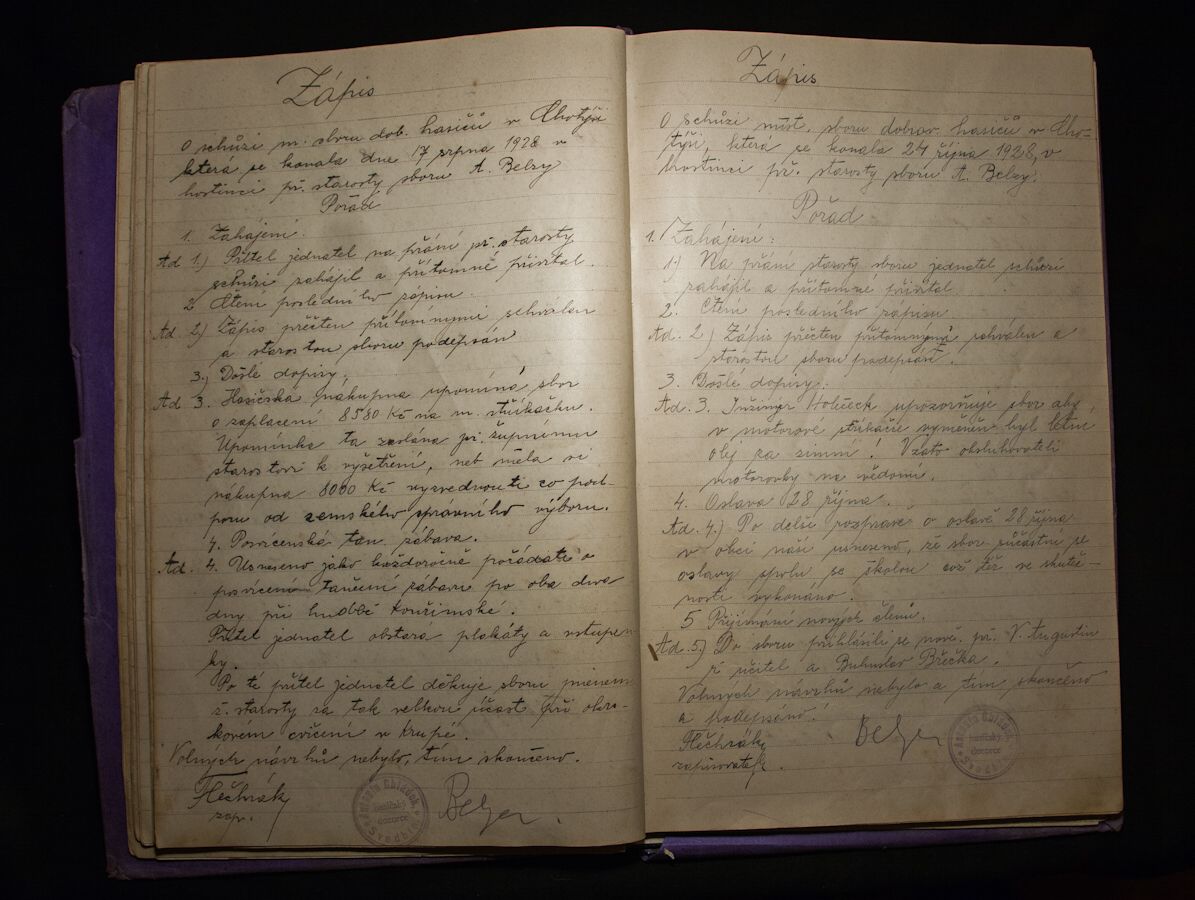 Zápis
o schůzi m. sboru dob. hasičů v Chotýši
která se konala dne 17 srpna 1928 v
hostinci př. starosty sboru A. Belzy
Pořad
1. Zahájení.
Ad 1.) Přítel jednatel na přání př. starosty
schůzi zahájil a přítomné přivítal.
2 Čtení posledního zápisu.
Ad. 2) Zápis přečten přítomnými schválen
a starostou sboru podepsán
3.) Došlé dopisy:
Ad 3. Hasičská nákupna upomíná sbor
o zaplacení 8580 Kč na m. stříkačku.
Upomínka ta zaslána př. župnímu
starostovi k vyšetření, neb měla si
nákupna 8000 Kč vyzvednouti co pod-
poru od zemského správního výboru.
4. Posvícenská tan. zábava.
Ad. 4. Usneseno jako každoročně pořádati o
posvícení taneční zábavu po oba dva
dny při hudbě kouřimské.
Přítel jednatel obstará plakáty a vstupen
ky.
Po té přítel jednatel děkuje sboru jménem
ž. starosty za tak velkou účast při okrs-
kovém cvičení v Krupé.
Volných návrhů nebylo, tím skončeno.
Hečhrák
zap.
Antonín Chládek,
hasičský
dozorce
Belza.
Zápis
O schůzi míst. sboru dobrov. hasičů v Cho-
týši, která se konala 24 října 1928, v
hostinci př. starosty sboru A. Belzy.
Pořad
1. Zahájení:
1.) Na přání starosty sboru jednatel schůzi
zahájil a přítomné přivítal.
2. Čtení posledního zápisu.
Ad. 2) Zápis přečten přítomnými schválen a
starostou sboru podepsán.
3. Došlé dopisy:
Ad. 3. Inžinýr Holeček upozorňuje sbor aby
v motorové stříkačce vyměněn byl letní
olej za zimní! Vzato obsluhovateli
motorovky na vědomí.
4. Oslava 28 října.
Ad. 4.) Po delší rozpravě o oslavě 28 října
v obci naší usneseno, že sbor súčastní se
oslavy spolu se školou což též ve skuteč-
nosti vykonáno.
5 Přijímání nových členů.
Ad. 5.) Do sboru přihlásili se nově. př. V. Augustin
ř. učitel a Bohuslav Břečka.
Volných návrhů nebylo a tím skončeno
a podepsáno!
Hečhrák
zapisovatel.
Belza
Antonín Chládek,
hasičský
dozorce